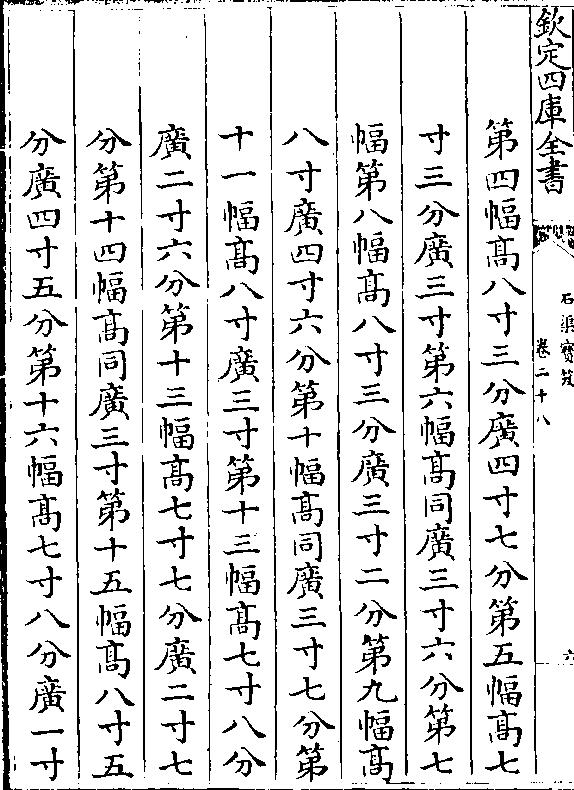 欽定四庫全書
石渠寶笈
卷二十八
六
第四幅髙八寸三分廣四寸七分第五幅髙七
寸三分廣三寸第六幅髙同廣三寸六分第七
幅第八幅髙八寸三分廣三寸二分第九幅髙
八寸廣四寸六分第十幅髙同廣三寸七分第
十一幅髙八寸廣三寸第十三幅髙七寸八分
廣二寸六分第十三幅髙七寸七分廣二寸七
分第十四幅髙同廣三寸第十五幅髙八寸五
分廣四寸五分第十六幅髙七寸八分廣一寸